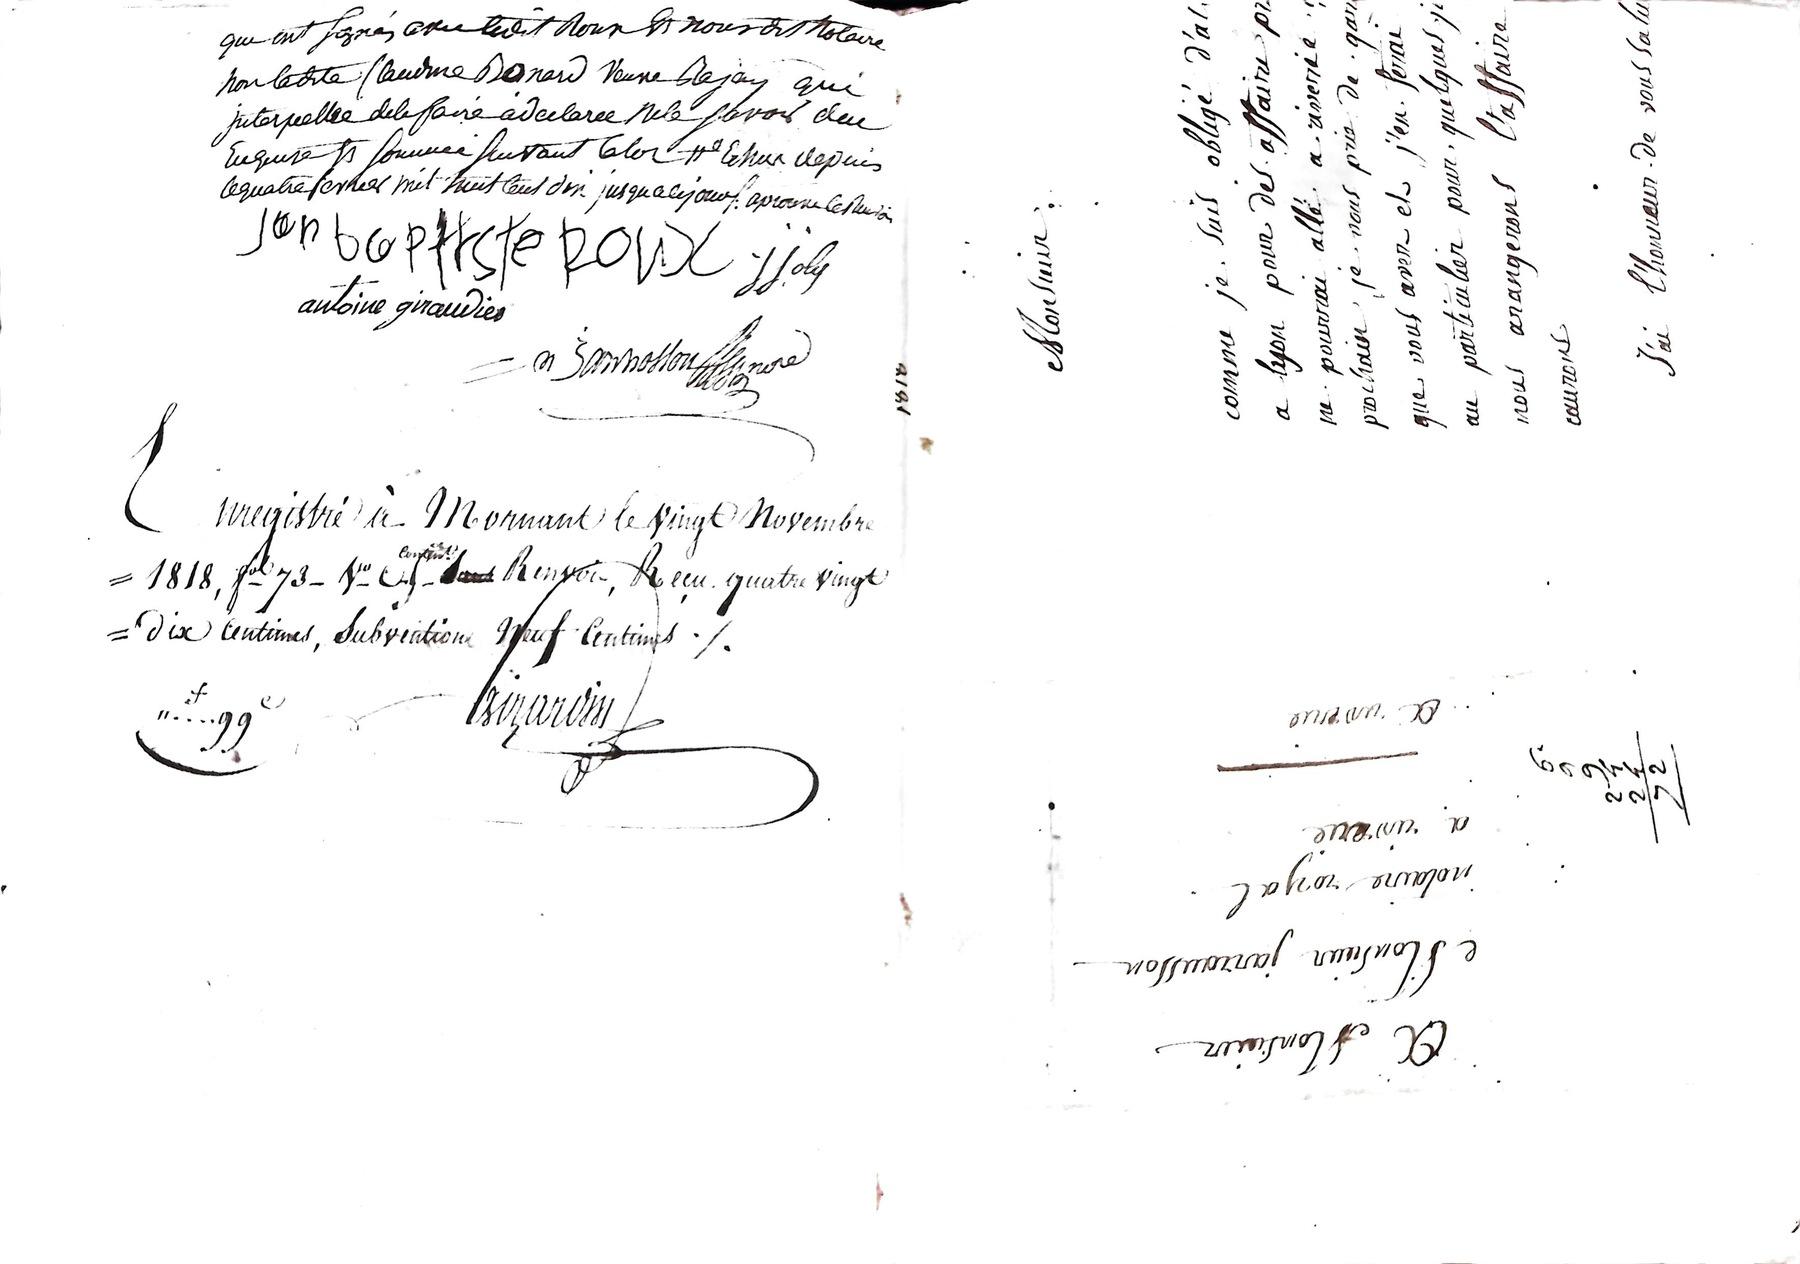 qui ont signés avec ledit Roux et nous dit Notaire
non ladite Claudine Bonard veuve Dejay qui
interpellée de le faire à declaree ne le savoir deu
Enquise et sommée suivant la loi Echus depuis
le quatre mil huit cent dix jusqu'a ce jour aprouve le
Jan baptiste Roux j j. oly
antoine giraudier
Enregistré à Mornant le vingt Novembre
= 1818, fol 73 Vo C. contenant Renvoi, Reçu quatre vingt
= dix Centimes, Subvention Neuf Centimes ./.
"....99 c
Girardin
1818
Monsieur.
comme je suis obligé d'al
a lyon pour des affaire pr
ne pourrai allé a riverie
prochain je vous prie de
que vous aver et j'en ferai
au particulier pour quelques j
nous arangerons l'affaire
caurons
J'ai l'honneur de vous salu
A Monsieur
Monsieur jarrousson
notaire royal
a riverie
A riverie
6
9
9
24
24
72